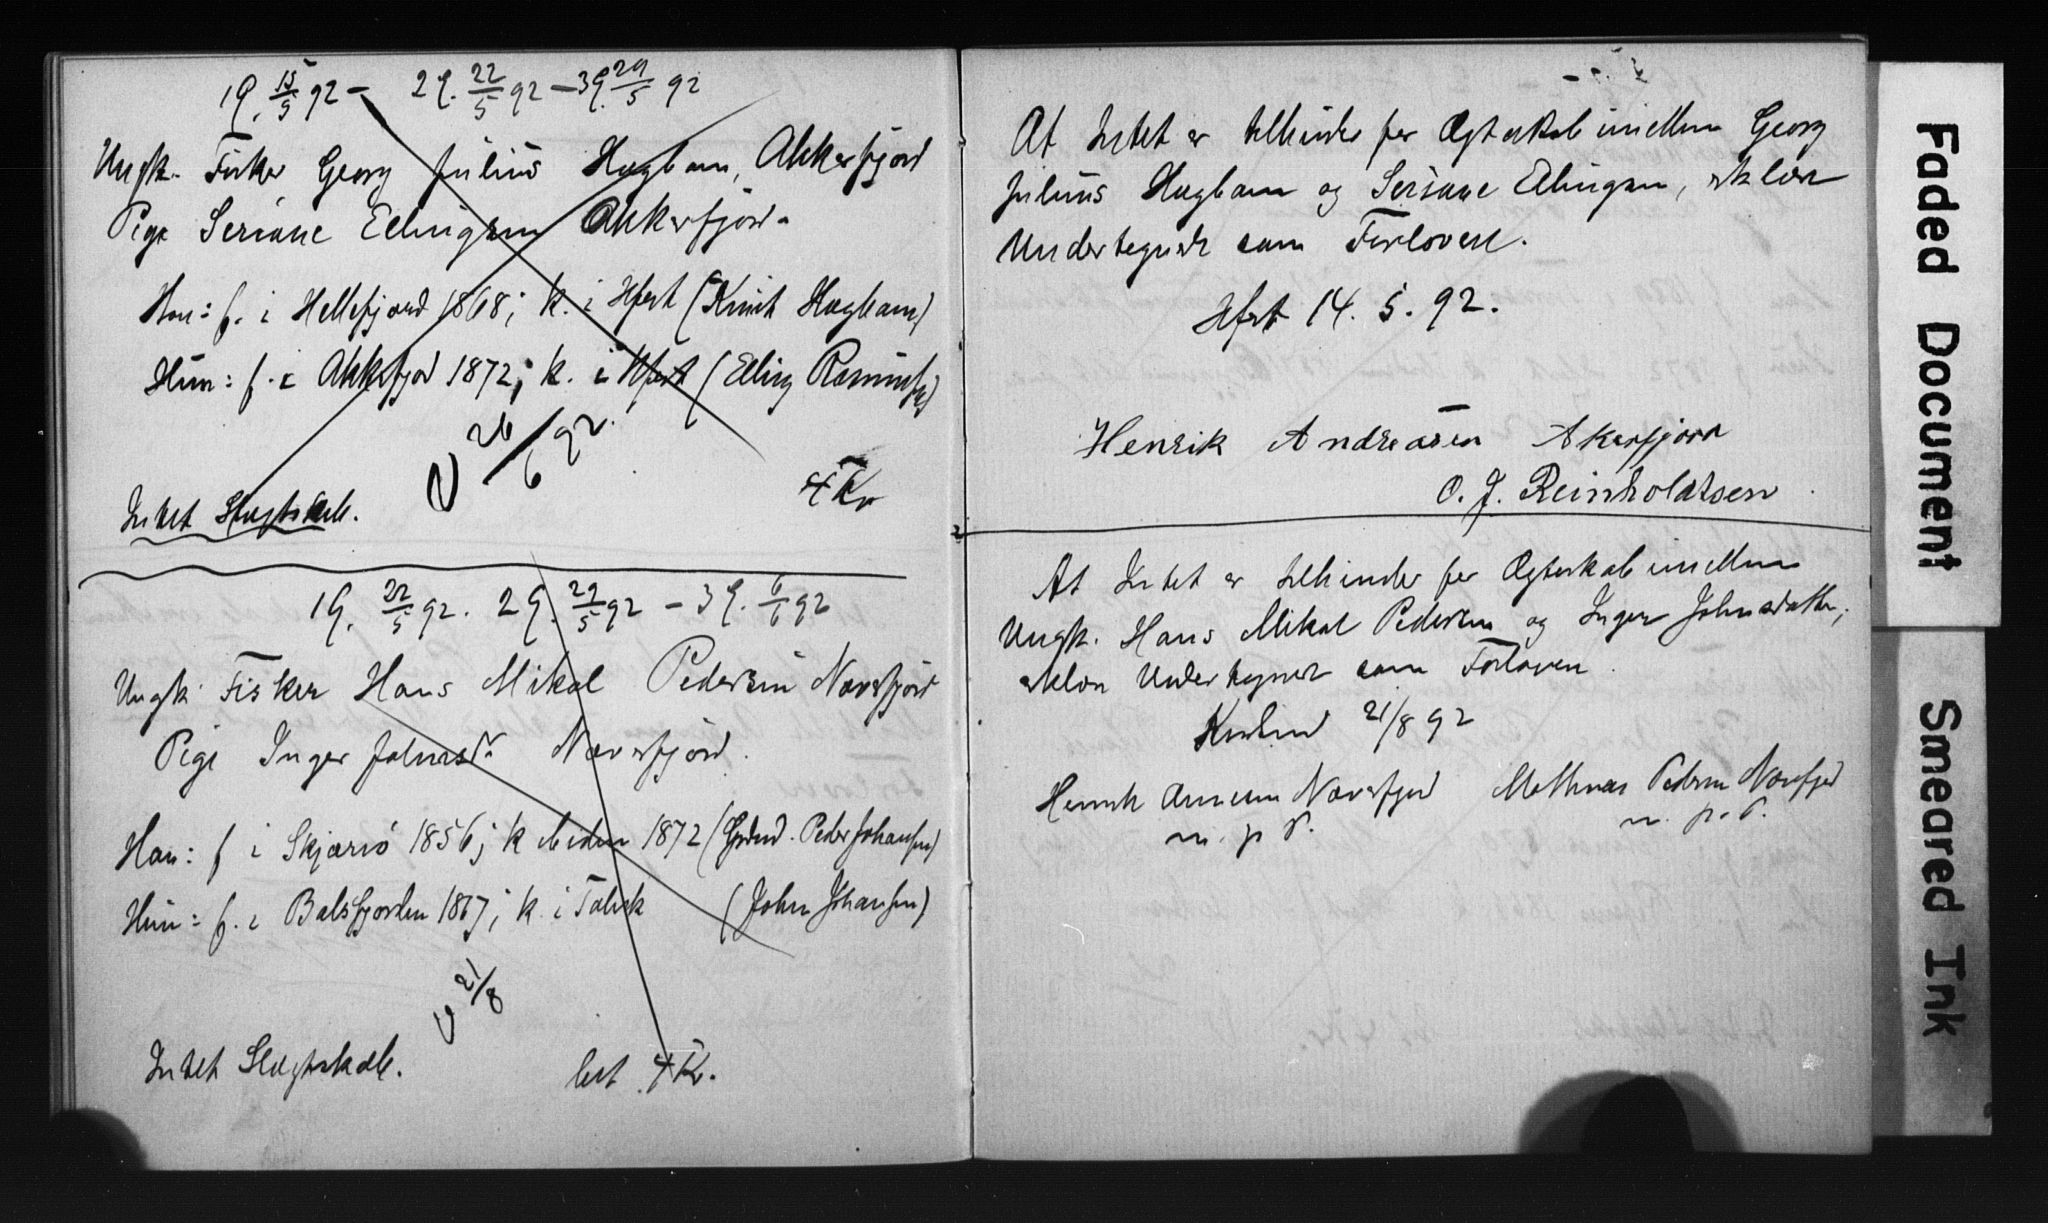 1 G. 15/5 92 – 2 G. 22/5 92 – 3 G. 29/5 92
Ungk. Fisker Georg Julius Hagbam, Akkerfjord
Pige Seriane Ellingsen Akkerfjord
Han: f. i Hellefjord 1868; k. i Hfest (Knut Hagbam)
Hun: f. i Akkerfjord 1872; k. i Hfest (Elling Rasmussen)
V 26/6 92.
Intet Slægtskab.
4 Kr
1 G. 22/5 92. 2 G. 29/5 92 – 3 G. 6/6 92
Ungk. Fisker Hans Mikal Pedersen Næverfjord
Pige Inger Johnsdr Næverfjord.
Han: f i Skjærvø 1856; k 1872 (Peder Johansen)
Hun: f. i Balsfjorden 1867; k. i Talvik (John Johansen)
V 21/8
Intet Slægtskab.
bet 4 Kr.
At Intet er tilhinder for Ægteskab imellem Georg
Julius Hagbam og Seriane Ellingsen, erklærer
Undertegnede som Forlovere.
Hfest 14. 5. 92.
Henrik Andreasen Akerfjord
O. J. Reinholdtsen
At Intet er tilhinder for Ægteskab imellem
Ungk. Hans Mikal Pedersen og Inger Johnsdatter,
erklærer Undertegnede som Forlovere.
21/8 92
Henrik Næverfjord Mathias Pedersen Næverfjord
m. p. P. m. p. P.
Faded Document
Smeared Ink